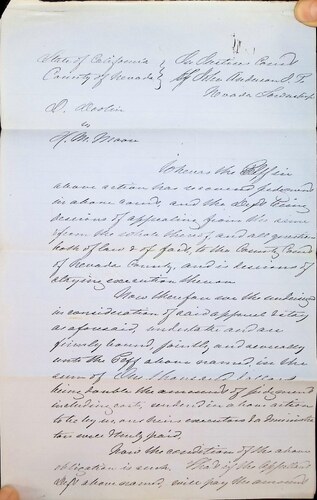 State of California } In Justice Court
County of Nevada } of John Anderson J. P.
Nevada Township
D.
vs
H. M. Moore
Whereas the Plff in
above action has recovered judgment
in above cause, and the Deft being
desirous of appealing from the same
from the whole thereof and all questions
both of law & of fact, to the County Court
of Nevada County, and is desirous of
staying execution thereon
Now therefore we the undersigned
in consideration of said appeal & stay
as aforesaid undertake and are
firmly bound, jointly and severally
unto the Plff above named, in the
sum of Dollars
being double the amount of judgment
including costs, rendered in above action
to be by us, and executors & administra
tors well & truly paid.
Now the condition of the above
obligation is such. That if the Appellant
Deft above named, will pay the amount